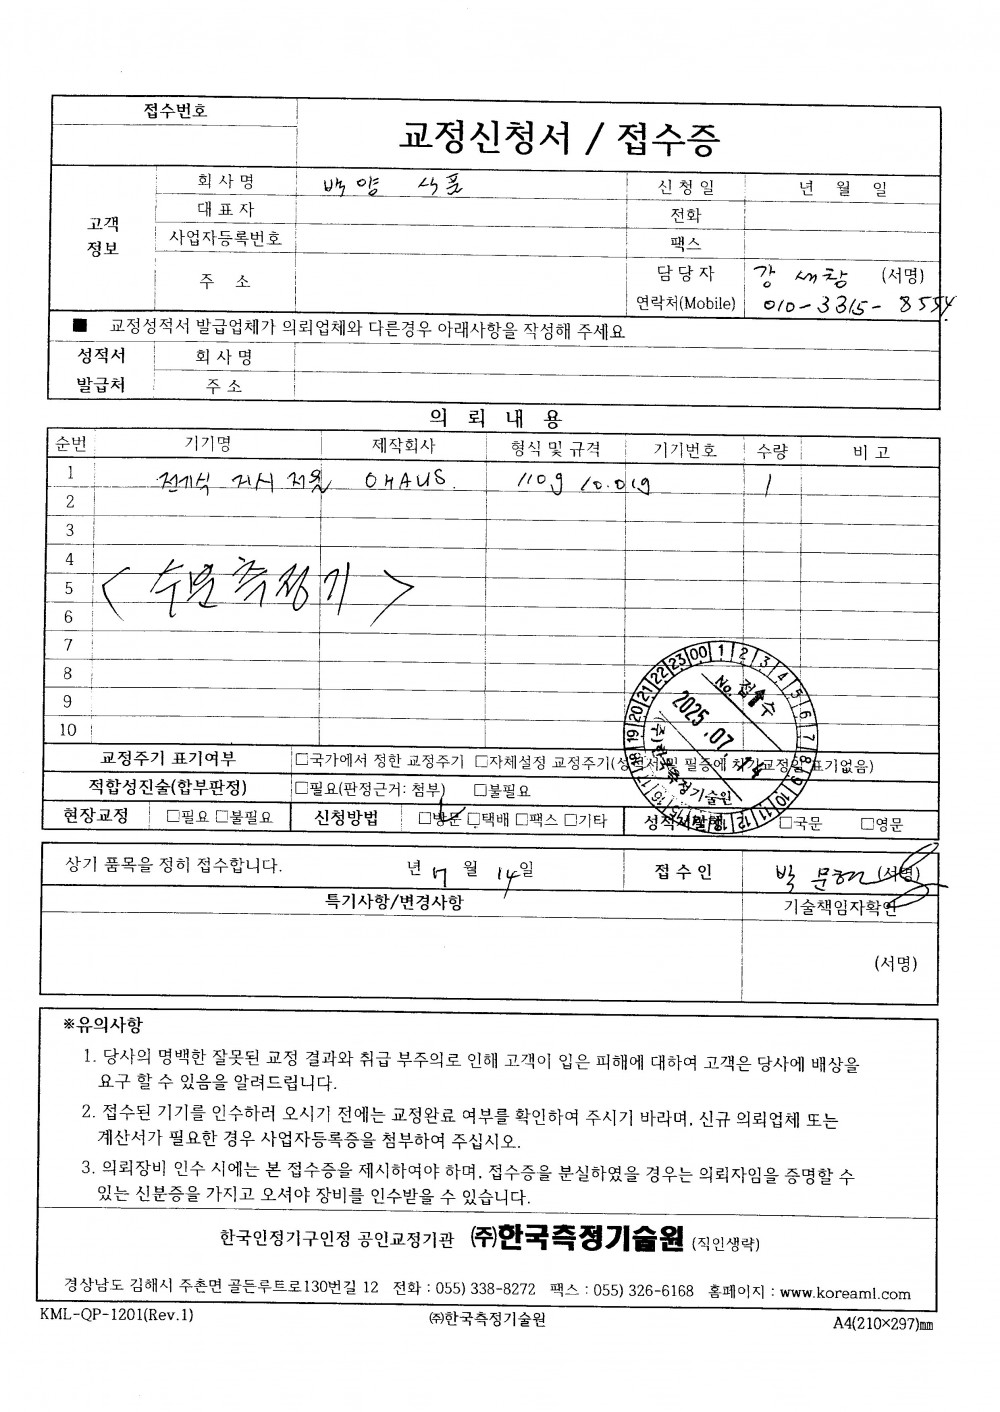 접수번호
교정신청서 / 접수증
고객 정보
회 사 명 백 양 식 품 신 청 일 년 월 일
대 표 자 전화
사업자등록번호 팩스
주 소 담 당 자 강 새참 (서명)
연락처(Mobile) 010-3315-8554
■ 교정성적서 발급업체가 의뢰업체와 다른경우 아래사항을 작성해 주세요
성적서 발급처
회 사 명
주 소
의 뢰 내 용
순번 기기명 제작회사 형식 및 규격 기기번호 수량 비 고
1 전기식 지시 저울 OHAUS. 110g /0.01g 1
2
3
4
5 < 수분측정기 >
6
7
8
9
10
No. 접수
2025.07.14
(주)한국측정기술원
교정주기 표기여부 □국가에서 정한 교정주기 □자체설정 교정주기(성적서 및 필증에 차기교정일 표기없음)
적합성진술(합부판정) □필요(판정근거: 첨부) □불필요
현장교정 □필요 □불필요 신청방법 □방문 □택배 □팩스 □기타 성적서발행 □국문 □영문
상기 품목을 정히 접수합니다. 년 7 월 14일 접 수 인 박 문현 (서명)
특기사항/변경사항 기술책임자확인
(서명)
※유의사항
1. 당사의 명백한 잘못된 교정 결과와 취급 부주의로 인해 고객이 입은 피해에 대하여 고객은 당사에 배상을
요구 할 수 있음을 알려드립니다.
2. 접수된 기기를 인수하러 오시기 전에는 교정완료 여부를 확인하여 주시기 바라며, 신규 의뢰업체 또는
계산서가 필요한 경우 사업자등록증을 첨부하여 주십시오.
3. 의뢰장비 인수 시에는 본 접수증을 제시하여야 하며, 접수증을 분실하였을 경우는 의뢰자임을 증명할 수
있는 신분증을 가지고 오셔야 장비를 인수받을 수 있습니다.
한국인정기구인정 공인교정기관 (주)한국측정기술원 (직인생략)
경상남도 김해시 주촌면 골든루트로130번길 12 전화 : 055) 338-8272 팩스 : 055) 326-6168 홈페이지 : www.koreaml.com
KML-QP-1201(Rev.1) (주)한국측정기술원 A4(210×297)mm